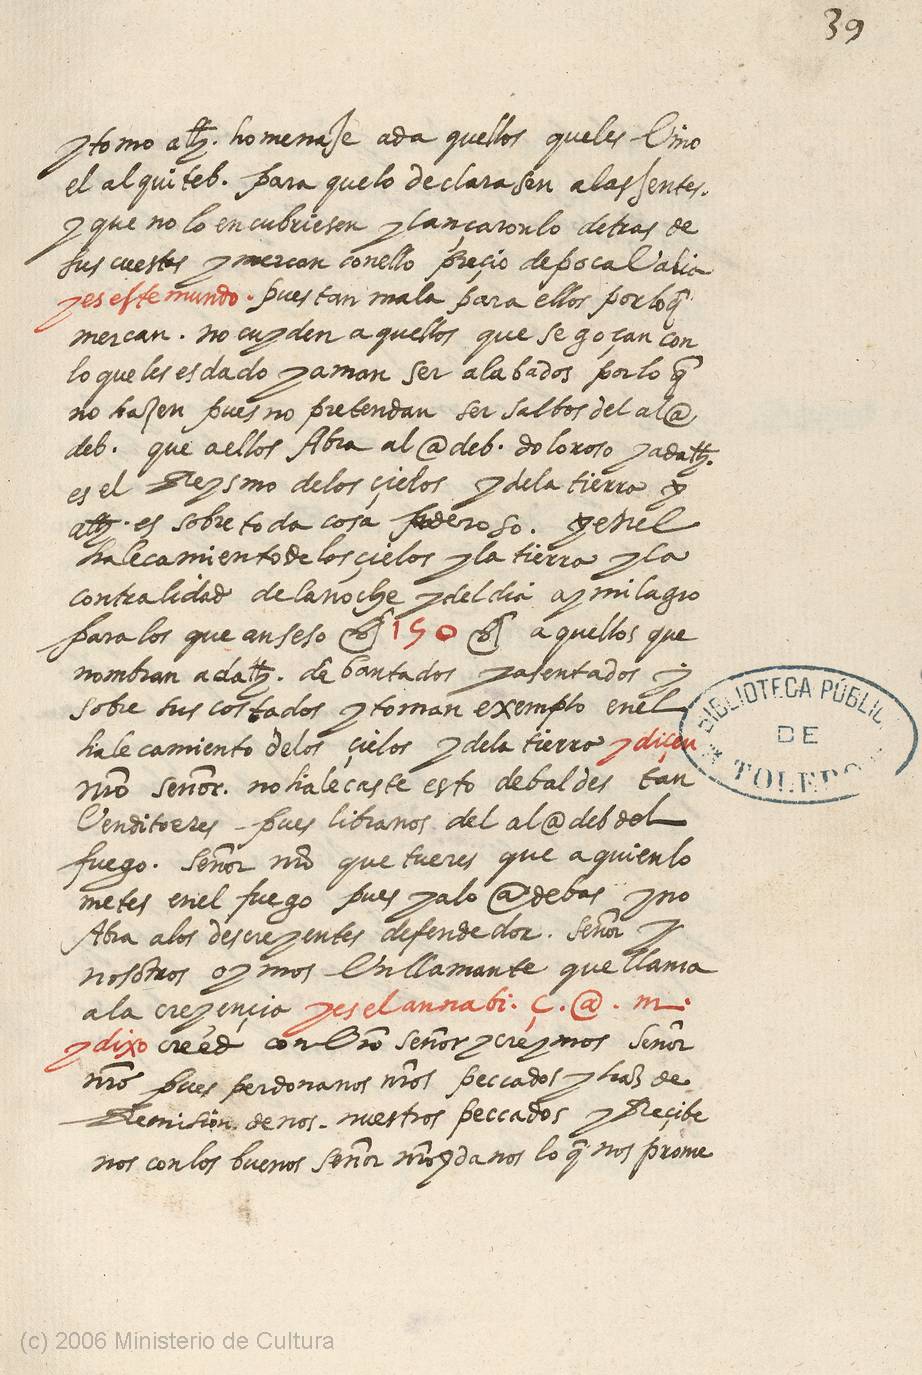 39
y tomo allh. homenaje ada quellos queles Vino
el alquiteb. para quelo declarasen alas jentes.
y que no lo encubriesen y lançaronlo detras de
sus cuestas y mercan conello preçio de poca Valia
y es este mundo. pues tan mala para ellos por lo q̃
mercan. no cuyden aquellos que se goçan con
lo que les es dado y aman ser alabados por lo q̃
no hazen pues no pretendan ser salbos del al@
deb. que a ellos Abra al@deb. doloroso y ada allh.
es el Reysmo delos çielos y dela tierra y
allh. es sobre toda cosa poderoso. y enel
halecamiento de los çielos y la tierra y la
contralidad de la noche y del dia ay milagro
para los que an seso 190 aquellos que
nombran ada allh. debantados y asentados y
sobre sus costados y toman exemplo enel
halecamiento delos çielos y dela tierra y diçen
nr̃o señor. no halecaste esto debaldes tan
Venditoeres pues libranos del al@deb del
fuego. señor nr̃o que tu eres que a quien lo
metes enel fuego pues ya lo @debas y no
Abra alos descreyentes defendedor. señor y
nosotros oymos Vn llamante que llama
ala creyençia y es el annabi. ç. @. m.
y dixo creed con Vr̃o señor y creymos señor
nr̃o pues perdonanos nr̃os peccados y haz de
Remision de nos. nuestros peccados y Reçibe
nos con los buenos señor nr̃o y da nos lo q̃ nos prome
BIBLIOTECA PÚBLIC
DE
TOLEDO
(c) 2006 Ministerio de Cultura